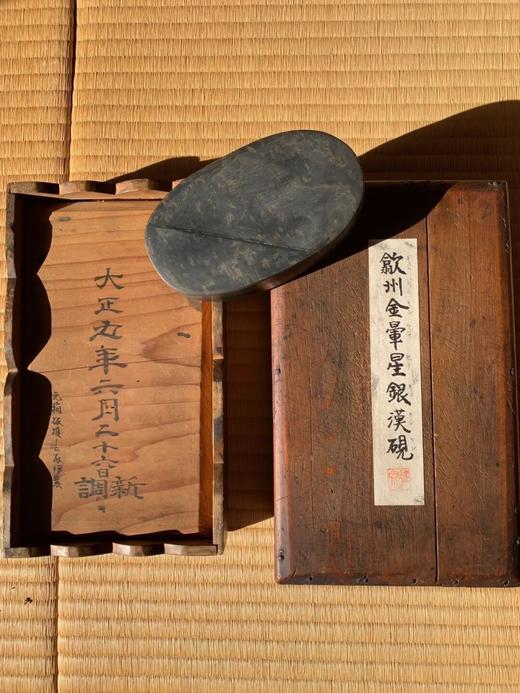 歙州金暈星銀漢硯
大正九年六月二十六日
新調